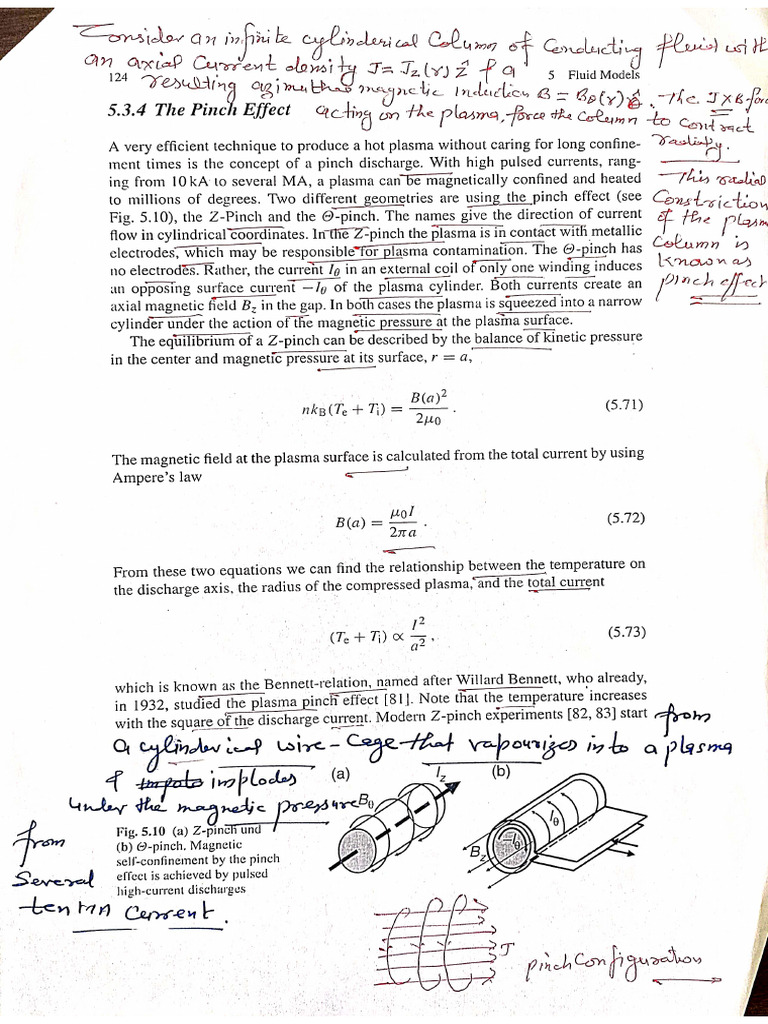 Consider an infinite cylinderical Column of Conducting fluid with
an axial Current density J = Jz(r) ẑ & a
124
5 Fluid Models
resulting azimuthal magnetic induction B = Bθ(r) θ̂. The J×B force
5.3.4 The Pinch Effect
acting on the plasma, force the Column to Contract
radially.
This radial
Constriction
of the plasma
Column is
known as
pinch effect
A very efficient technique to produce a hot plasma without caring for long confine-
ment times is the concept of a pinch discharge. With high pulsed currents, rang-
ing from 10 kA to several MA, a plasma can be magnetically confined and heated
to millions of degrees. Two different geometries are using the pinch effect (see
Fig. 5.10), the Z-Pinch and the Θ-pinch. The names give the direction of current
flow in cylindrical coordinates. In the Z-pinch the plasma is in contact with metallic
electrodes, which may be responsible for plasma contamination. The Θ-pinch has
no electrodes. Rather, the current Iθ in an external coil of only one winding induces
an opposing surface current −Iθ of the plasma cylinder. Both currents create an
axial magnetic field Bz in the gap. In both cases the plasma is squeezed into a narrow
cylinder under the action of the magnetic pressure at the plasma surface.
The equilibrium of a Z-pinch can be described by the balance of kinetic pressure
in the center and magnetic pressure at its surface, r = a,
nkB(Te + Ti) = B(a)²/2μ0 . (5.71)
The magnetic field at the plasma surface is calculated from the total current by using
Ampere's law
B(a) = μ0I/2πa . (5.72)
From these two equations we can find the relationship between the temperature on
the discharge axis, the radius of the compressed plasma, and the total current
(Te + Ti) ∝ I²/a² , (5.73)
which is known as the Bennett-relation, named after Willard Bennett, who already,
in 1932, studied the plasma pinch effect [81]. Note that the temperature increases
with the square of the discharge current. Modern Z-pinch experiments [82, 83] start
from
a cylinderical wire-cage that vapourizes into a plasma
& implodes
under the magnetic pressure
from
Several
ten MA Current.
(a)
Iz
Bθ
(b)
Iθ
-Iθ
Bz
Fig. 5.10 (a) Z-pinch und
(b) Θ-pinch. Magnetic
self-confinement by the pinch
effect is achieved by pulsed
high-current discharges
J
pinch Configuration